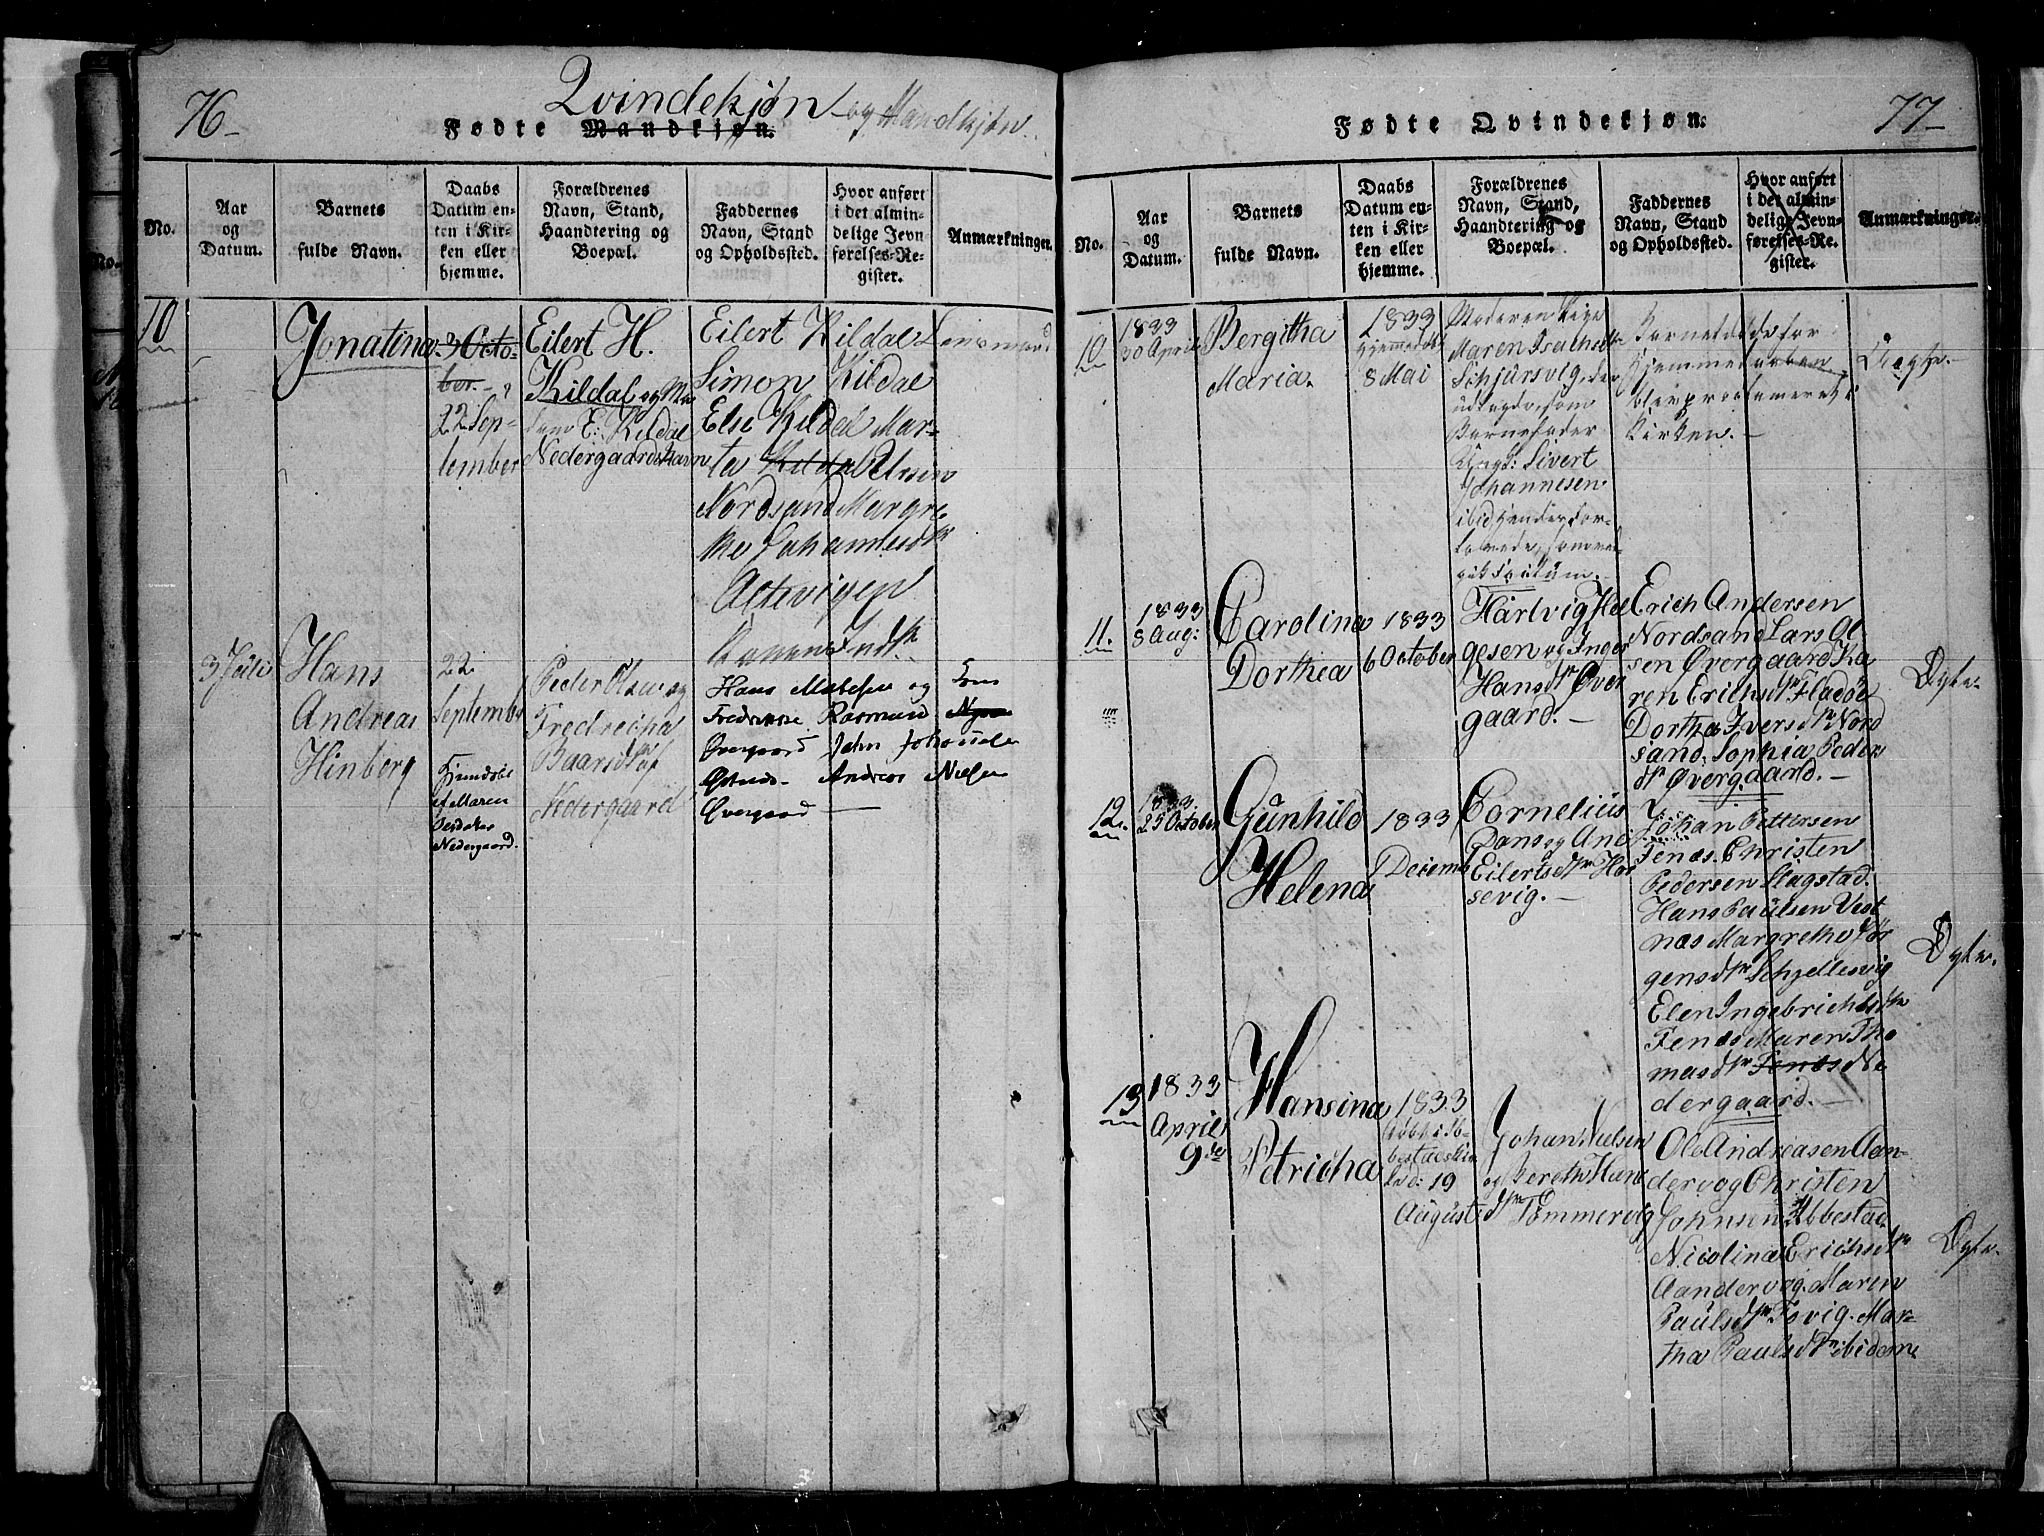 76
Qvindekjøn og Mandkjøn.
Fødte Mandkjøn.
No.
Aar
og
Datum.
Barnets
fulde Navn.
Daabs
Datum en-
ten i Kir-
ken eller
hjemme.
Forældrenes
Navn, Stand,
Haandtering og
Boepæl.
Faddernes
Navn, Stand
og Opholdssted.
Hvor anført
i det almin-
delige Jevn-
førelses-Re-
gister.
Anmærkninger.
10
Jonatina
3 Octo-
ber
22 Sep-
tember
Eilert H.
Kildal og Ma
dam E: Kildal
Nedergaardshavn
Eilert Kildal
Simon Kildal
Else Kildal Mar-
ta Kildal
Nordsand Margre-
the Johannesdtr
3 Juli
Hans
Andreas
Hinberg
22
September
Peder Olsen og
Fredricha
Baarsdtr af
Nedergaard
Hans Mathesen og
Fredrikke Rasmusd
Øvergaard John
Andreas Nielsen
Øvergaard
af Maren
Nedergaard.
77
Fødte Qvindekjøn.
No.
Aar
og
Datum.
Barnets
fulde Navn.
Daabs
Datum en-
ten i Kir-
ken eller
hjemme.
Forældrenes
Navn, Stand,
Haandtering og
Boepæl.
Faddernes
Navn, Stand
og Opholdssted.
Hvor anført
i det almin-
delige Jevn-
førelses-Re-
gister.
Anmærkninger.
10
1833
30 April
Bergitha
Maria.
1833
Hjemmedøbt
8 Mai
Moderen Pige
Maren Isachsdtr
udlagde, som
Barnefader
Ungk: Sivert
Johannesen
ibid
Barnet døde før
Hjemmedaaben
blev proclameret i
Kirken.
Uægte.
11.
1833
8 Aug:
Carolina
Dorthea
1833
6 October
Hartvig Hel
gesen og Inger
Hansdtr Øver
gaard.
Erich Andersen
Nordsand Lars Ol
sen Øvergaard Ka
ren Erichsdtr Fladøe
Dorthea Iversdtr Nord
sand. Sophia Peders
dtr Øvergaard.
Ægte.
12.
1833
25 October
Gunhild
Helena
1833
1 Decemb
Cornelius
Dons og Ane
Eilertsdtr Har
sevig.
Johan Pettersen
Fenæs. Christen
Pedersen Slagstad.
Hans Paulsen Vest
næs Margrethe Jør
gensdtr Schjellesvig
Elen Ingebrichtsdtr
Fenæs Maren Tho
masdtr Fenæs Ne
dergaard.
Ægte.
13
1833
April
9de
Hansina
Petricha
1833
døbt i Ib-
bestad Kir
ke d: 19
August
Johan Nielsen
og Bereth Hans
dtr Tømmervig
Ole Andreasen Aan-
dervog Christen
Johnsen Ibbestad
Nicolina Erichsdtr
Aandervog. Maren
Paulsdtr Isvig. Mar-
tha Paulsdtr ibidem
Ægte.